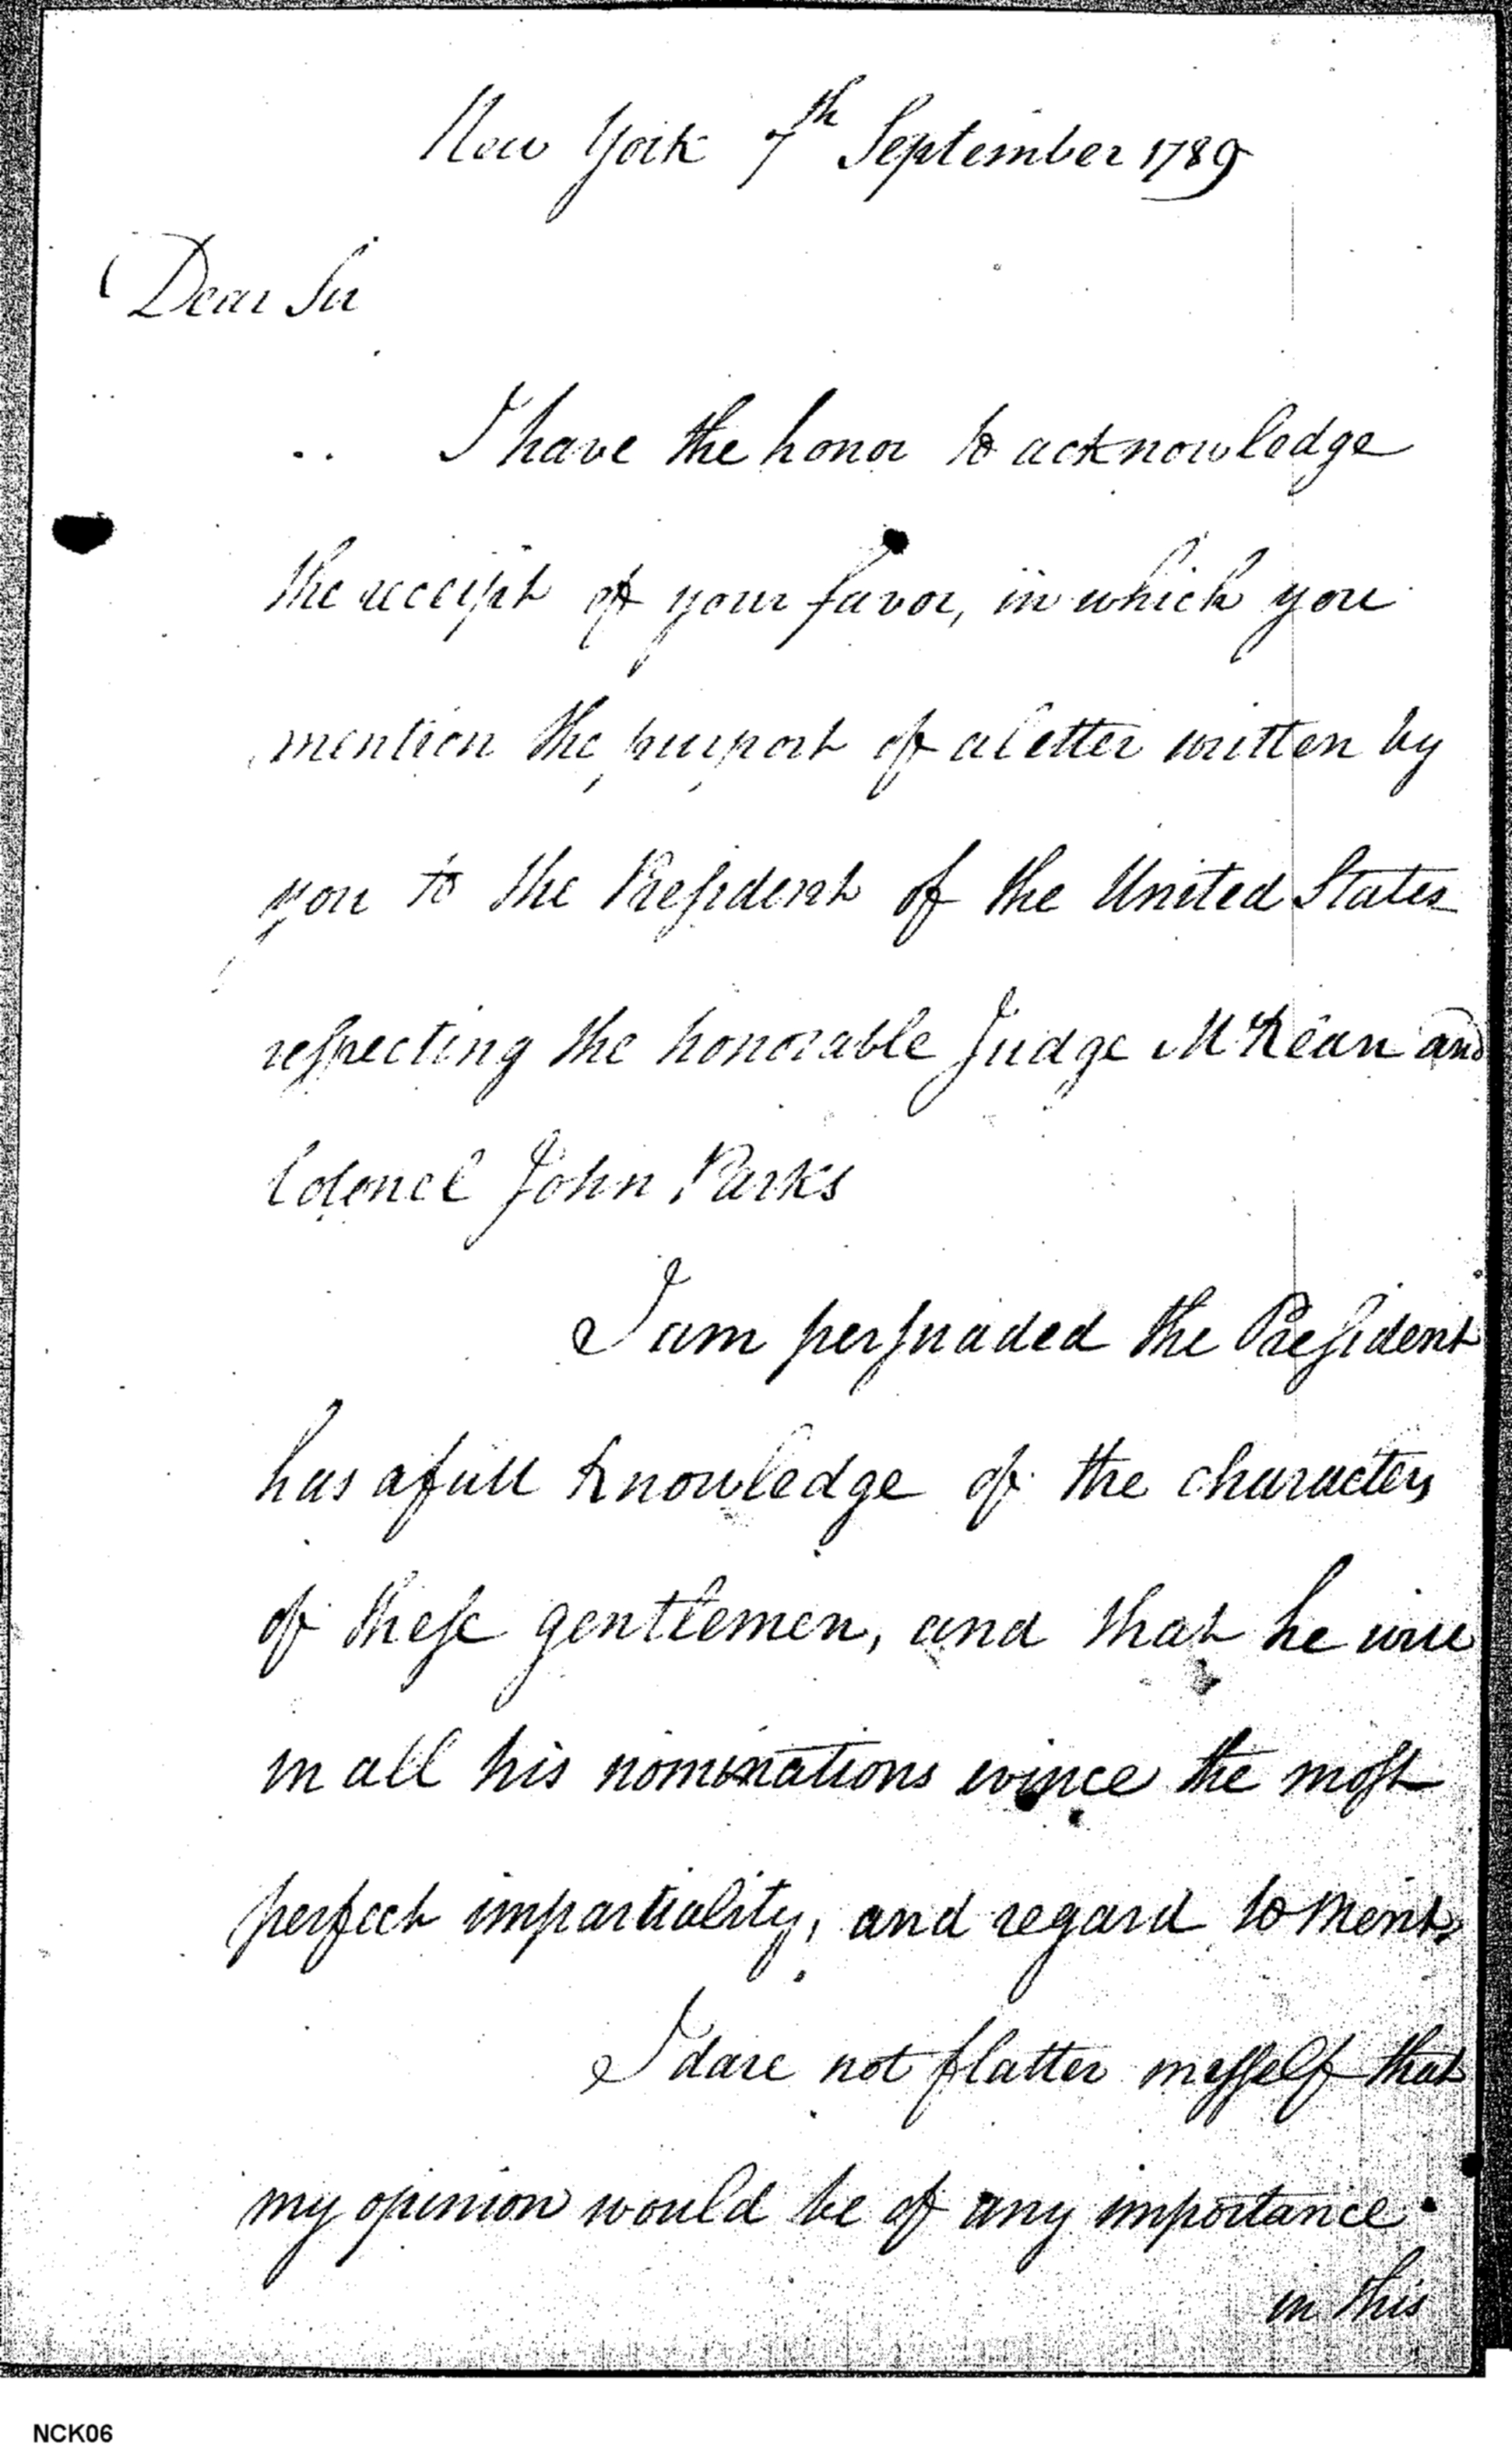 New York 7th September 1789
Dear Sir
I have the honor to acknowledge
the receipt of your favor, in which you
mention the purport of a letter written by
you to the President of the United States
respecting the honorable Judge McKean and
Colonel John Parks
I am persuaded the President
has a full knowledge of the characters
of these gentlemen, and that he will
in all his nominations evince the most
perfect impartiality, and regard to merit.
I dare not flatter myself that
my opinion would be of any importance
in this
NCK06